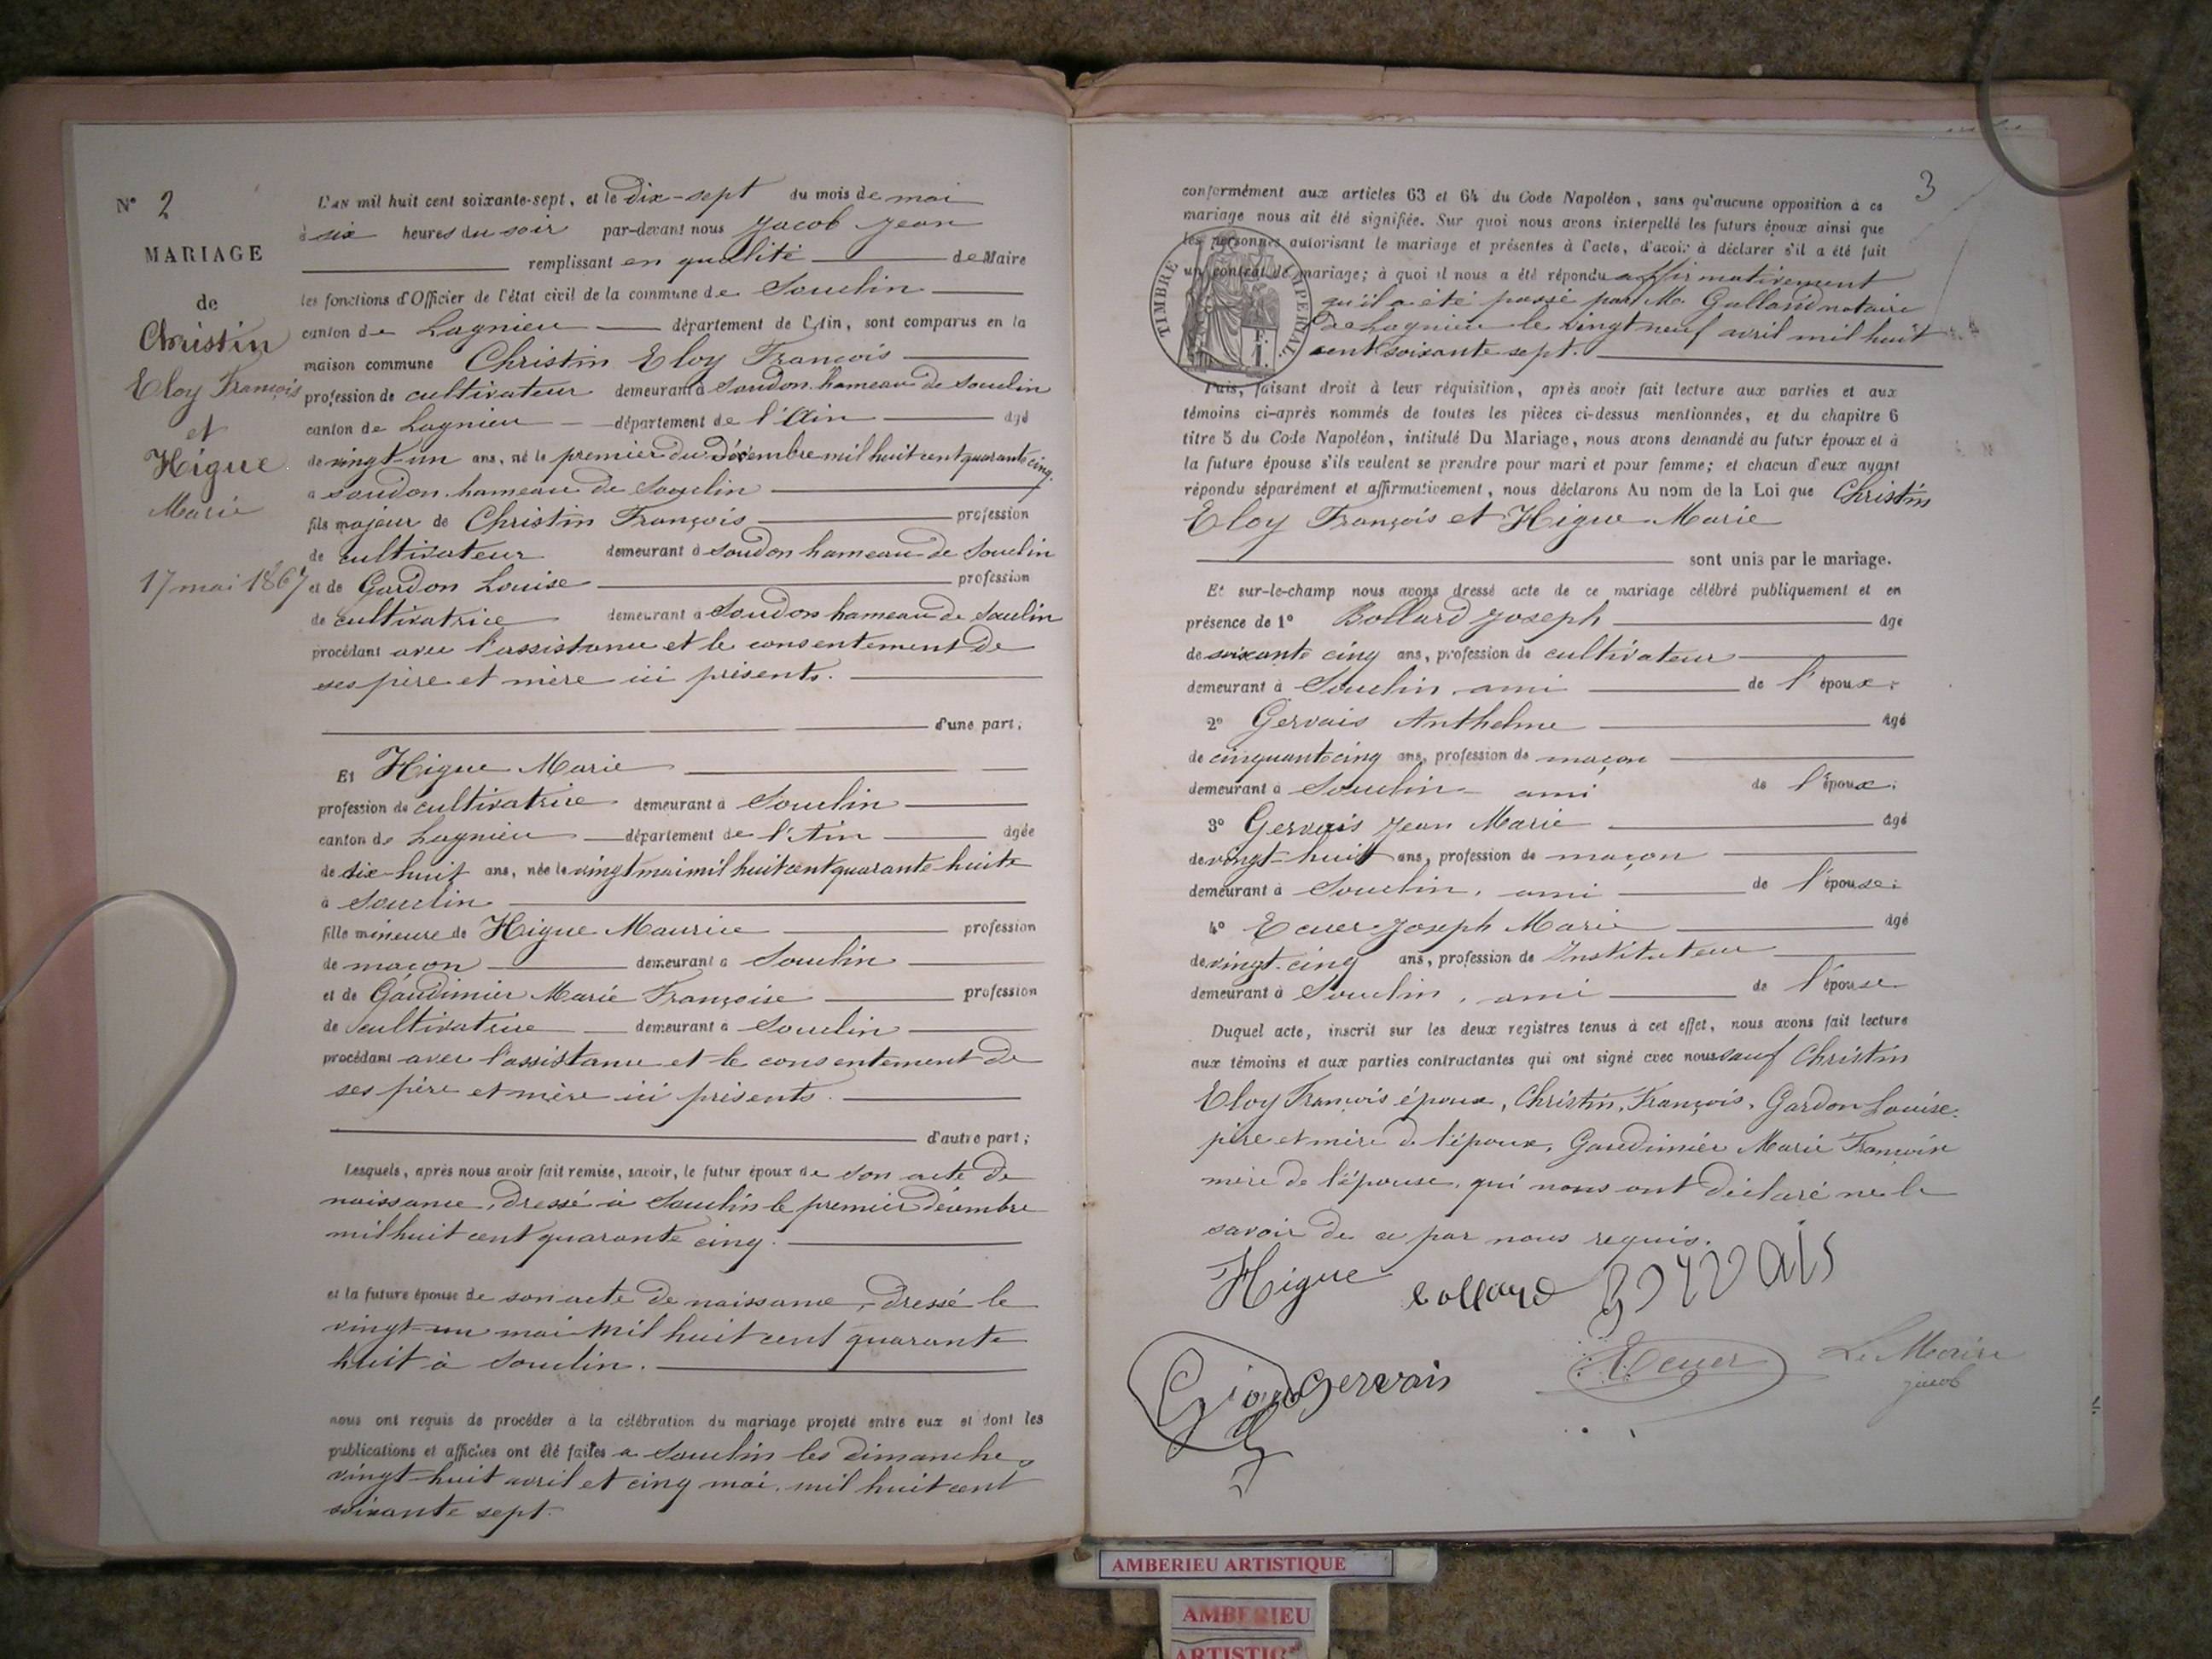 N° 2
MARIAGE
de
Christin
Eloy François
et
Higue
Marie
17 mai 1867
L'AN mil huit cent soixante-sept, et le dix-sept du mois de mai
à six heures du soir par-devant nous Jacob Jean
remplissant en qualité de Maire
les fonctions d'Officier de l'état civil de la commune de Souclin
canton de Lagnieu département de l'Ain, sont comparus en la
maison commune Christin Eloy François
profession de cultivateur demeurant à Soudon hameau de Souclin
canton de Lagnieu département de l'Ain âgé
de vingt-un ans, né le premier du Décembre mil huit cent quarante cinq.
à Soudon hameau de Souclin
fils majeur de Christin François profession
de cultivateur demeurant à Soudon hameau de Souclin
et de Gardon Louise profession
de cultivatrice demeurant à Soudon hameau de Souclin
procédant avec l'assistance et le consentement de
ses père et mère ici présents.
d'une part;
Et Higue Marie
profession de cultivatrice demeurant à Souclin
canton de Lagnieu département de l'Ain âgée
de dix-huit ans, née le vingt mai mil huit cent quarante huit
à Souclin
fille mineure de Higue Maurice profession
de maçon demeurant à Souclin
et de Gaudimier Marie Françoise profession
de cultivatrice demeurant à Souclin
procédant avec l'assistance et le consentement de
ses père et mère ici présents.
d'autre part;
Lesquels, après nous avoir fait remise, savoir, le futur époux de son acte de
naissance, dressé à Souclin le premier décembre
mil huit cent quarante cinq.
et la future épouse de son acte de naissance, dressé le
vingt-un mai mil huit cent quarante
huit à Souclin.
nous ont requis de procéder à la célébration du mariage projeté entre eux et dont les
publications et affiches ont été faites à Souclin les dimanches
vingt-huit avril et cinq mai, mil huit cent
soixante sept.
3
conformément aux articles 63 et 64 du Code Napoléon, sans qu'aucune opposition à ce
mariage nous ait été signifiée. Sur quoi nous avons interpellé les futurs époux ainsi que
les personnes autorisant le mariage et présentes à l'acte, d'avoir à déclarer s'il a été fait
un contrat de mariage; à quoi il nous a été répondu affirmativement
qu'il a été passé par Me Galland notaire
à Lagnieu le vingt neuf avril mil huit
cent soixante sept.
TIMBRE IMPERIAL
Puis, faisant droit à leur réquisition, après avoir fait lecture aux parties et aux
témoins ci-après nommés de toutes les pièces ci-dessus mentionnées, et du chapitre 6
titre 5 du Code Napoléon, intitulé Du Mariage, nous avons demandé au futur époux et à
la future épouse s'ils veulent se prendre pour mari et pour femme; et chacun d'eux ayant
répondu séparément et affirmativement, nous déclarons Au nom de la Loi que Christin
Eloy François et Higue Marie
sont unis par le mariage.
Et sur-le-champ nous avons dressé acte de ce mariage célébré publiquement et en
présence de 1° Bollard Joseph âgé
de soixante cinq ans, profession de cultivateur
demeurant à Souclin ami de l'époux;
2° Gervais Anthelme âgé
de cinquante cinq ans, profession de maçon
demeurant à Souclin ami de l'époux;
3° Gervais Jean Marie âgé
de vingt-huit ans, profession de maçon
demeurant à Souclin, ami de l'épouse;
4° Ecuer Joseph Marie âgé
de vingt-cinq ans, profession de Instituteur
demeurant à Souclin, ami de l'épouse
Duquel acte, inscrit sur les deux registres tenus à cet effet, nous avons fait lecture
aux témoins et aux parties contractantes qui ont signé avec nous sauf Christin
Eloy François époux, Christin, François, Gardon Louise
père et mère de l'époux, Gaudimier Marie Françoise
mère de l'épouse, qui nous ont déclaré ne le
savoir de ce par nous requis.
Higue bollard gervais
gervais Ecuer Le Maire
jacob
AMBERIEU ARTISTIQUE
AMBERIEU